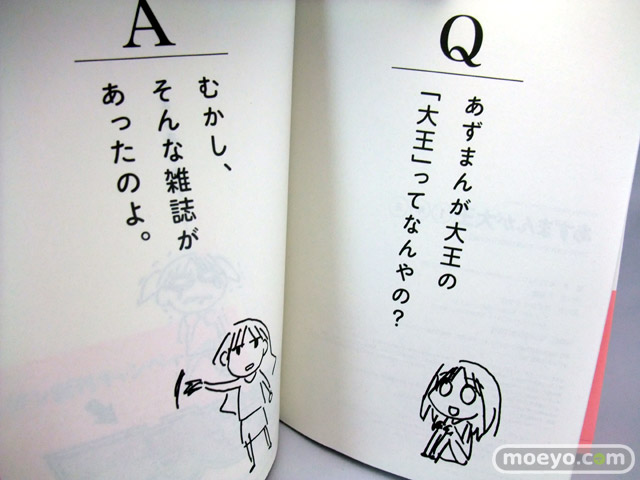 Q
あずまんが大王の
「大王」ってなんやの?
A
むかし、
そんな雑誌が
あったのよ。
moeyo.com